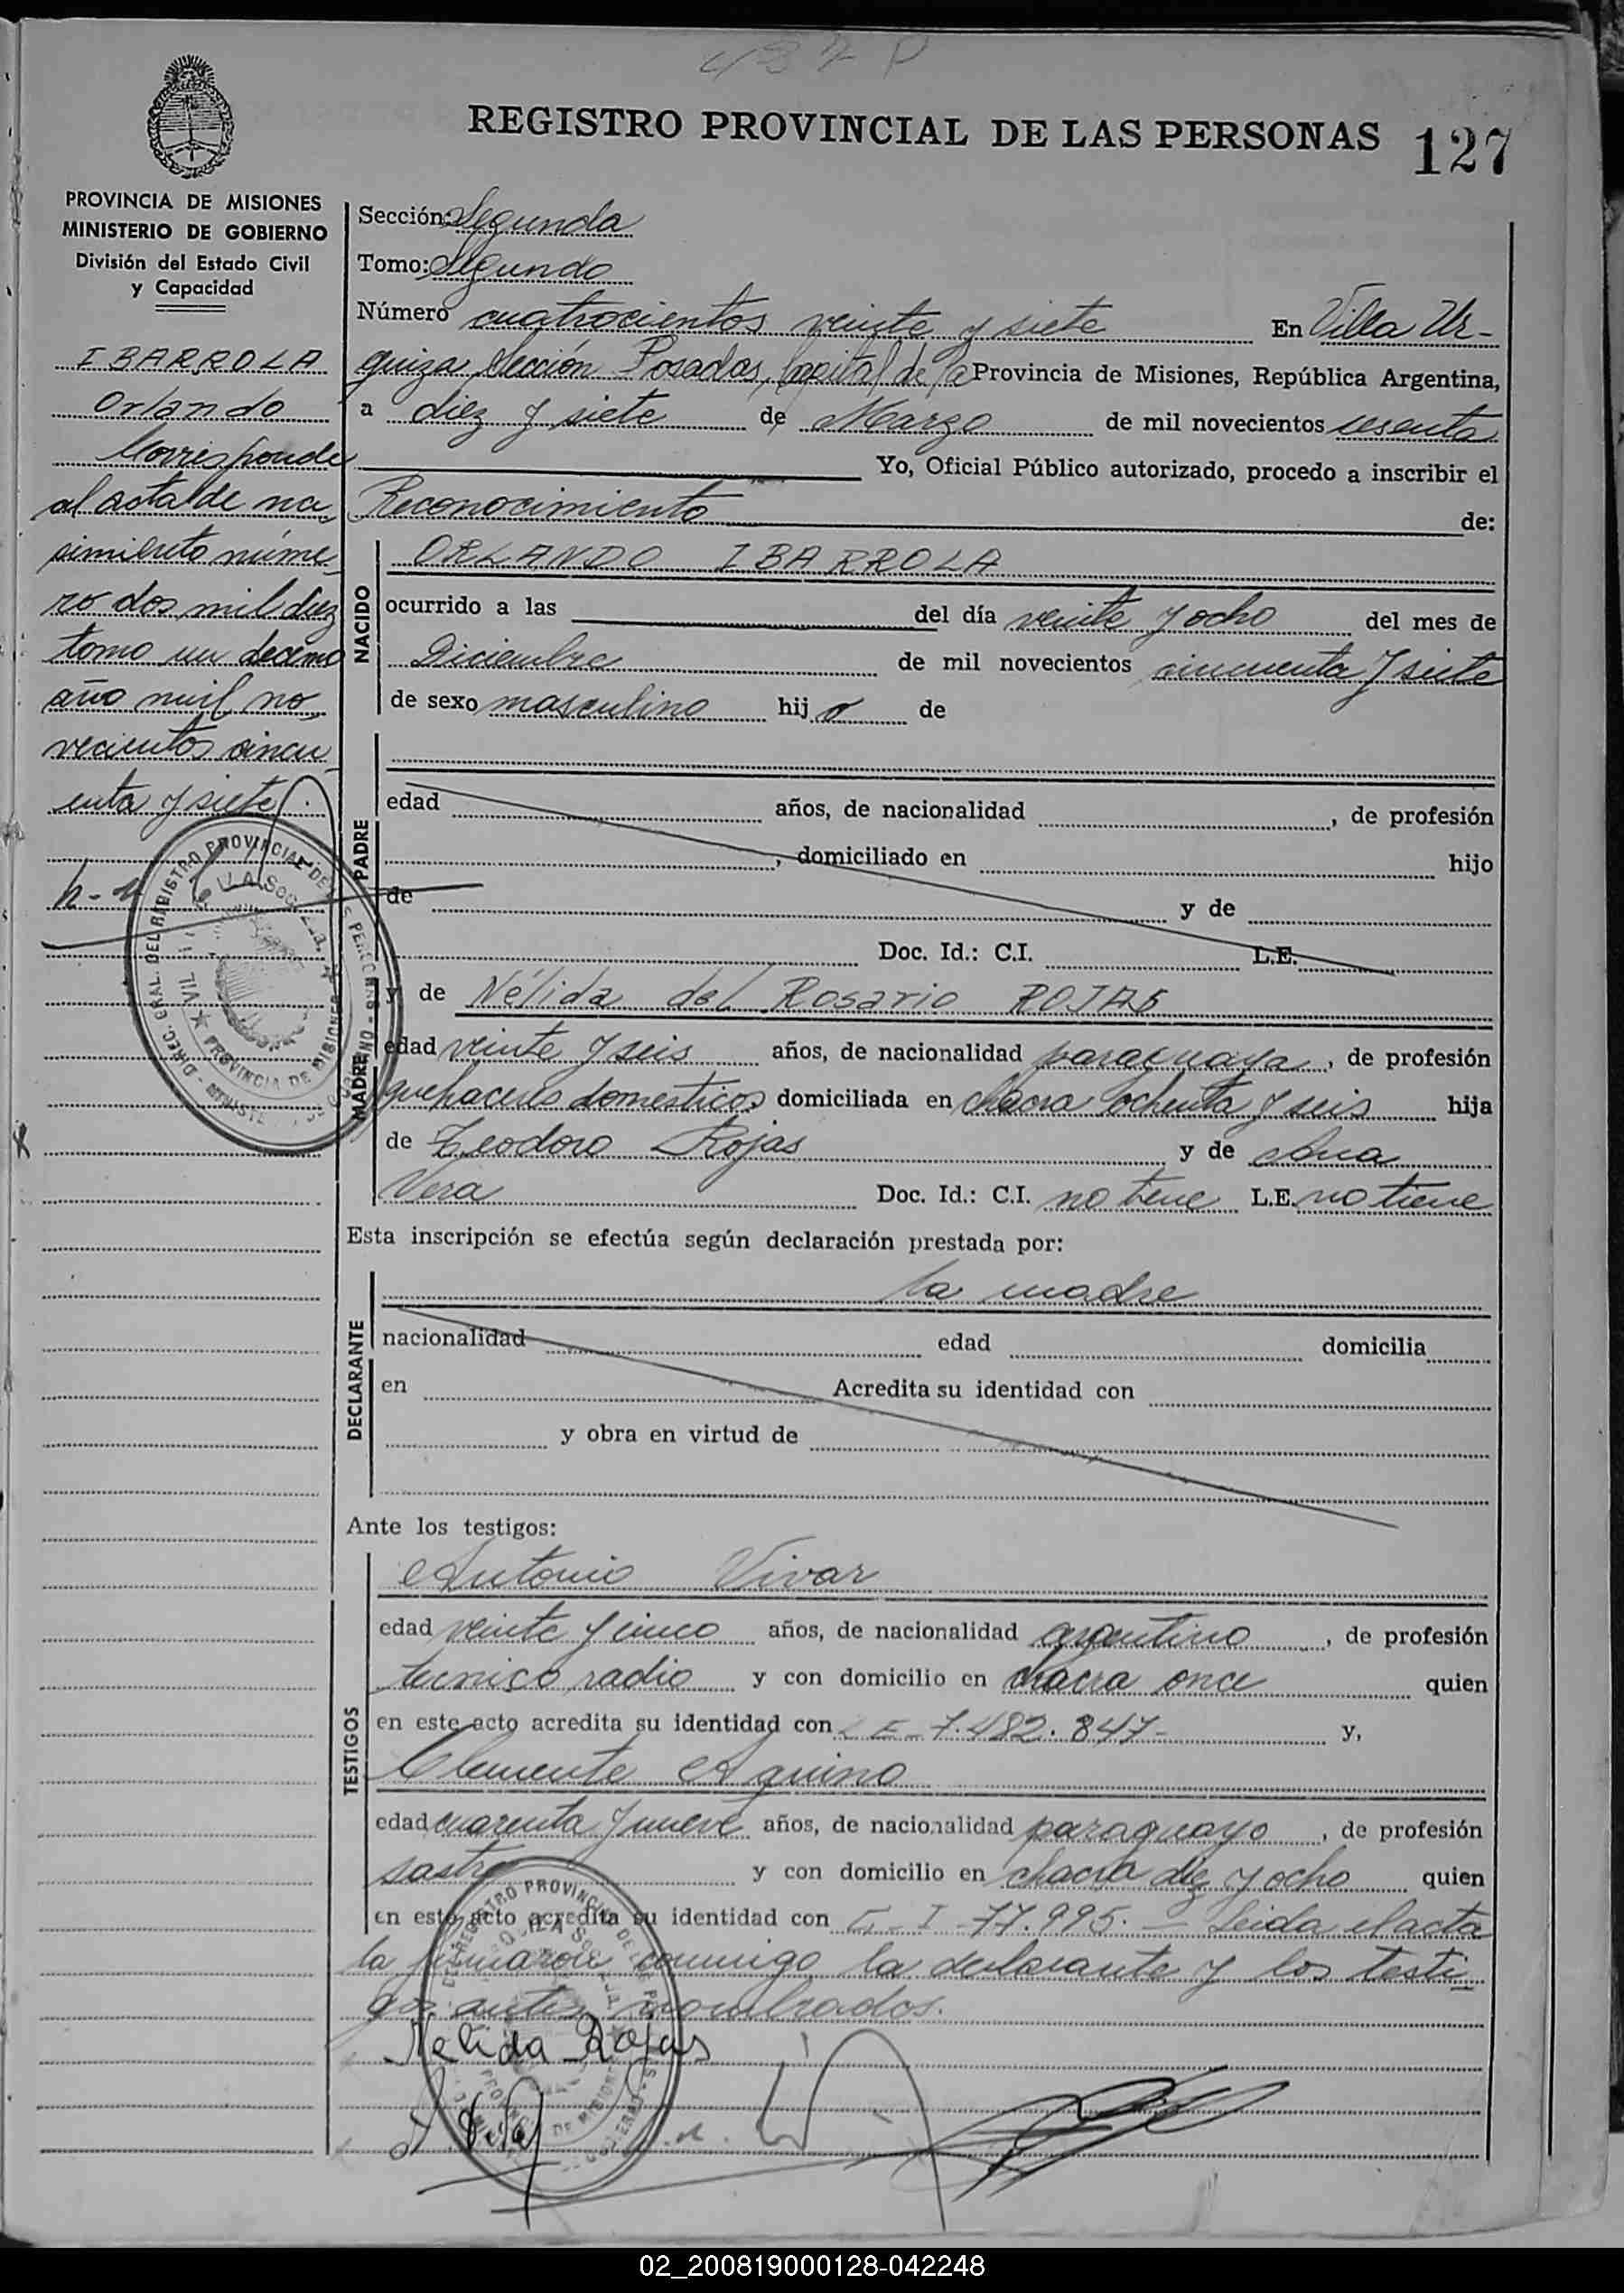 REGISTRO PROVINCIAL DE LAS PERSONAS 127
PROVINCIA DE MISIONES
MINISTERIO DE GOBIERNO
División del Estado Civil
y Capacidad
IBARROLA
Orlando
Corresponde
al acta de na-
simiento núme-
ro dos mil diez
tomo un decimo
año mil no-
vecientos cincu
enta y siete
Sección: Segunda
Tomo: Segundo
Número cuatrocientos veinte y siete En Villa Ur-
quiza Sección Posadas, Capital de la Provincia de Misiones, República Argentina,
a diez y siete de Marzo de mil novecientos sesenta
Yo, Oficial Público autorizado, procedo a inscribir el
Reconocimiento de:
NACIDO
ORLANDO IBARROLA
ocurrido a las del día veinte y ocho del mes de
Diciembre de mil novecientos cincuenta y siete
de sexo masculino hijo de
PADRE
edad años, de nacionalidad , de profesión
, domiciliado en hijo
de y de
Doc. Id.: C.I. L.E.
MADRE
y de Nélida del Rosario ROJAS
edad veinte y seis años, de nacionalidad paraguaya, de profesión
quehaceres domesticos domiciliada en chacra ochenta y seis hija
de Teodoro Rojas y de Ana
Vera Doc. Id.: C.I. no tiene L.E. no tiene
Esta inscripción se efectúa según declaración prestada por:
DECLARANTE
la madre
nacionalidad edad domicilia
en Acredita su identidad con
y obra en virtud de
Ante los testigos:
TESTIGOS
Antonio Vivar
edad veinte y cinco años, de nacionalidad argentino, de profesión
tecnico radio y con domicilio en chacra once quien
en este acto acredita su identidad con L E - 7.482.847- y,
Clemente Aquino
edad cuarenta y nueve años, de nacionalidad paraguayo, de profesión
sastre y con domicilio en chacra diez y ocho quien
en este acto acredita su identidad con C - I - 77.995. - Leida el acta
la firmaron conmigo la declarante y los testi
gos antes nombrados.
Nelida Rojas
02_200819000128-042248